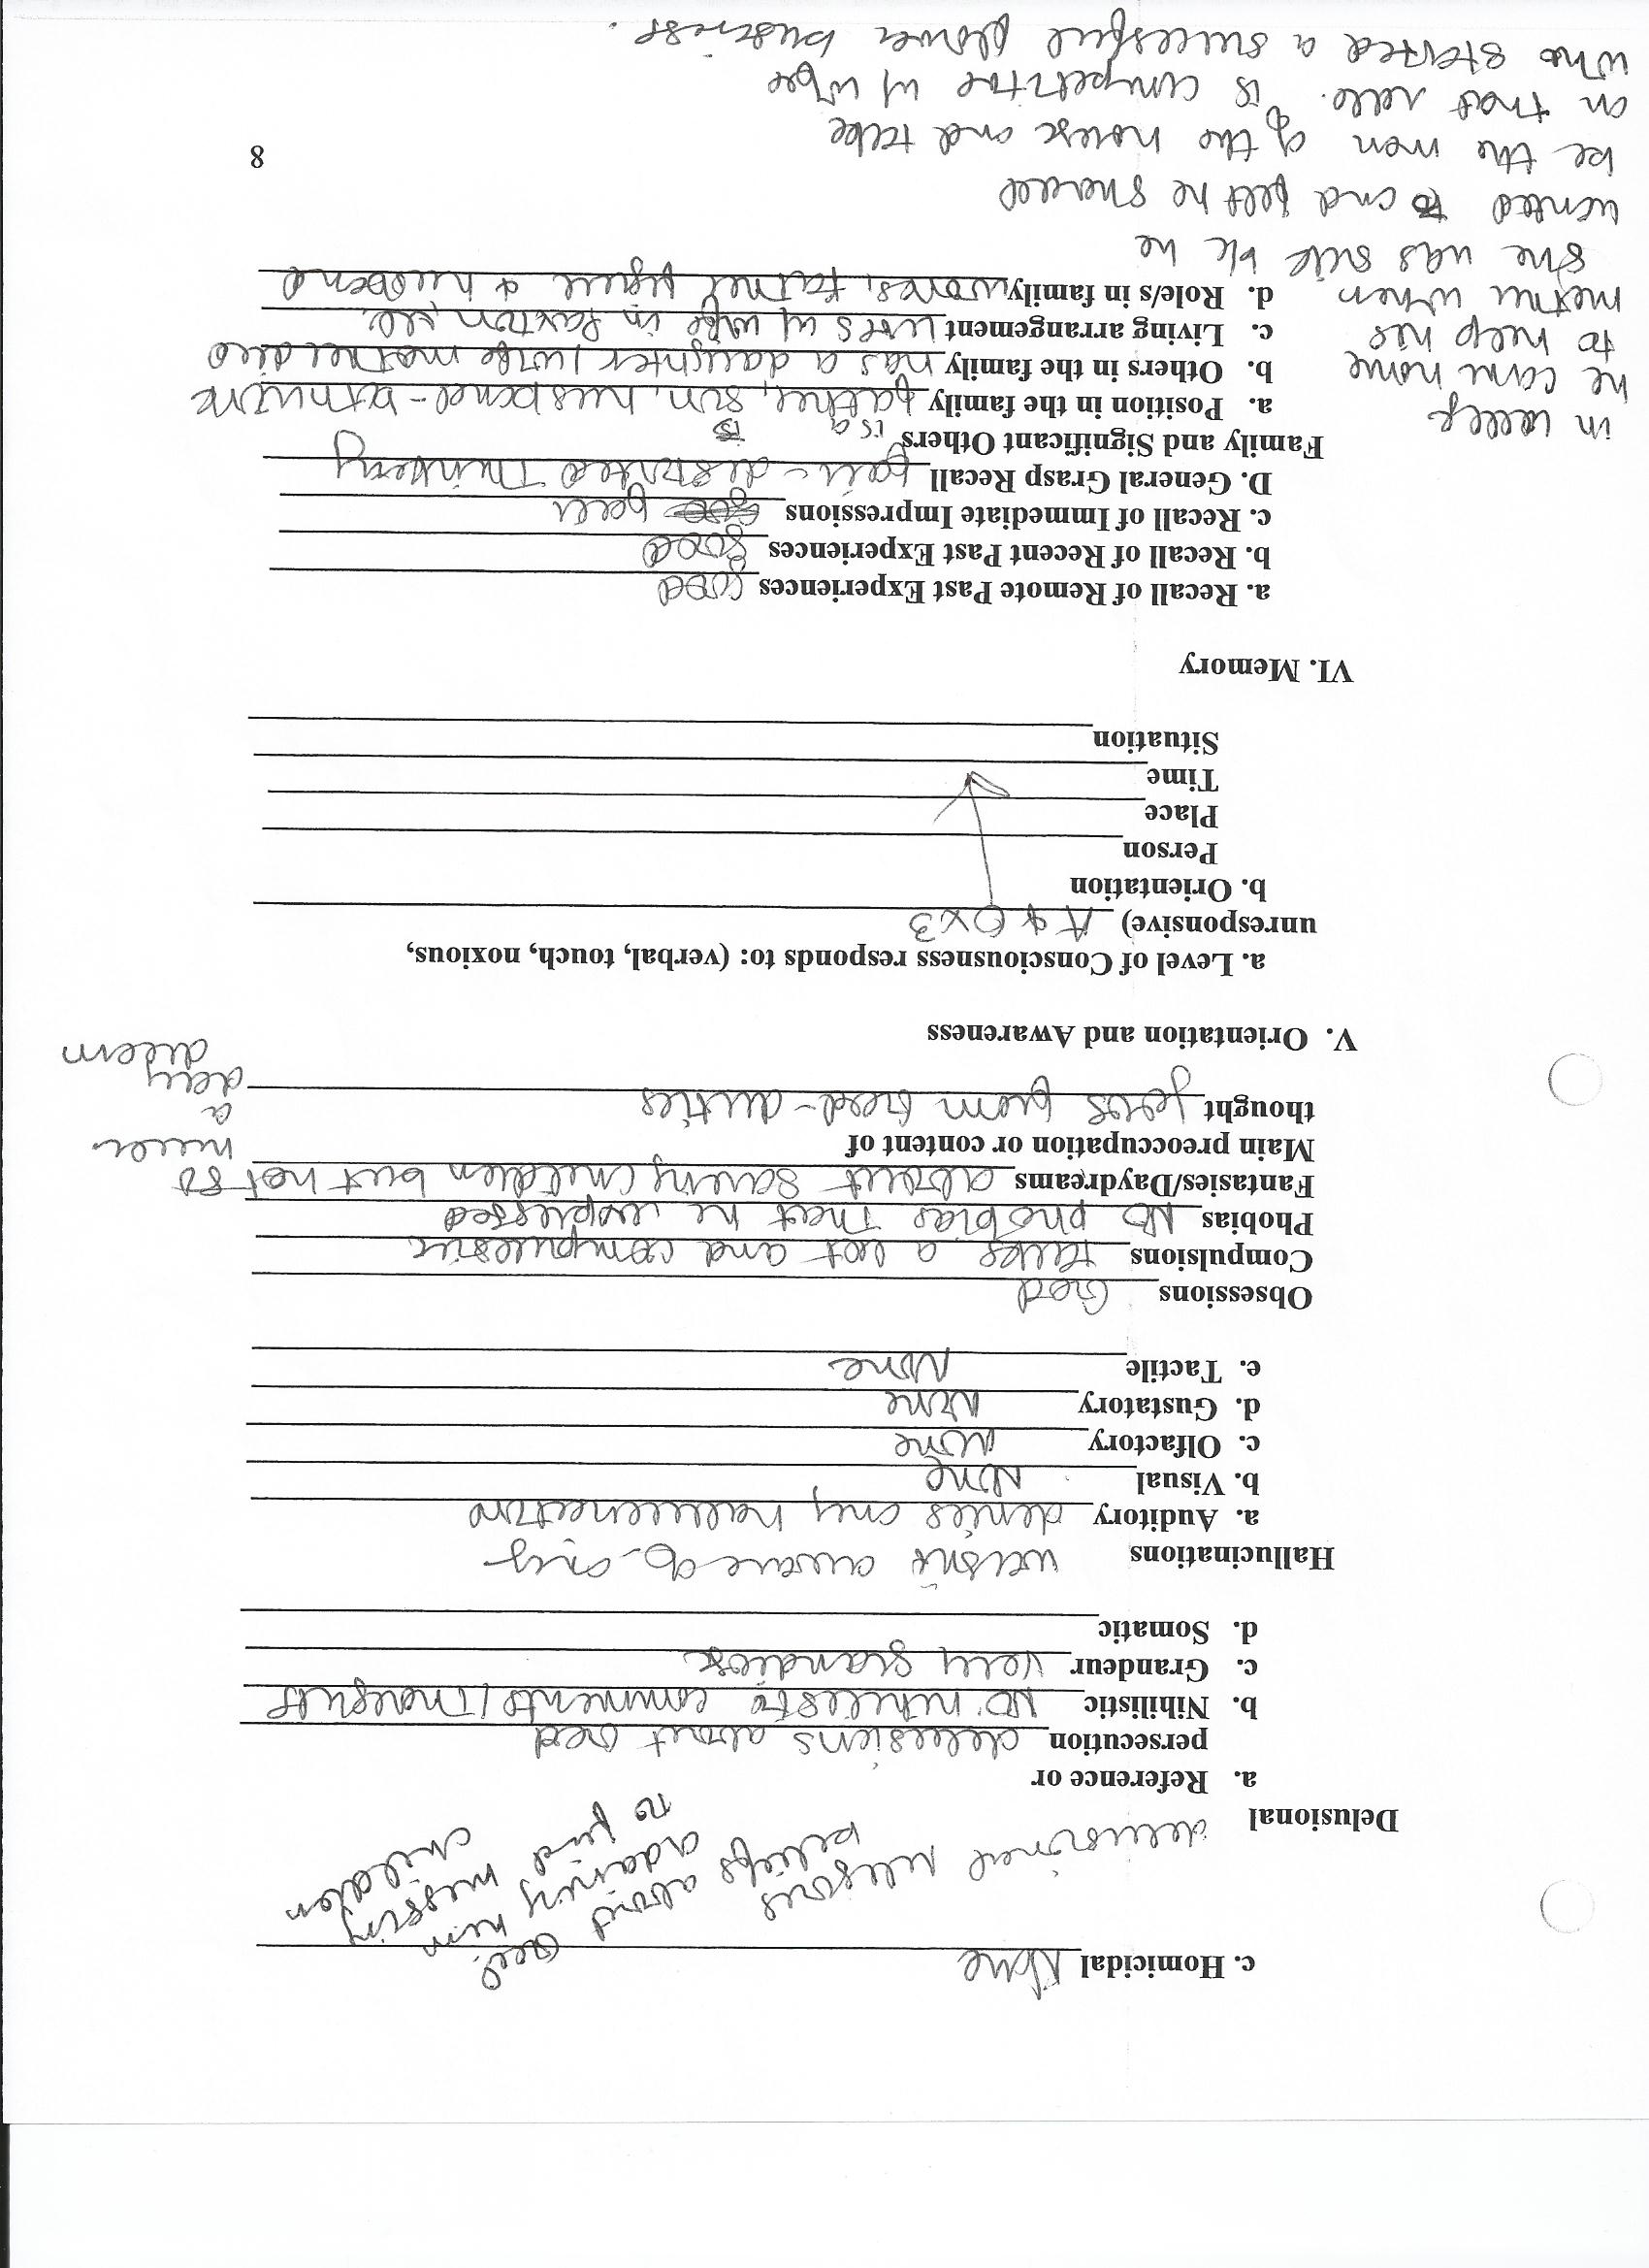 c. Homicidal None
Delusional delusional religious
beliefs about God
asking him
to find missing
children
a. Reference or
persecution delusions about God
b. Nihilistic No nihilistic comments/thoughts
c. Grandeur very grandiose
d. Somatic
Hallucinations wasn't aware of any
a. Auditory denies any hallucination
b. Visual None
c. Olfactory None
d. Gustatory None
e. Tactile None
Obsessions God
Compulsions talks a lot and compulsive
Phobias No phobias that he expressed
Fantasies/Daydreams about saving children but not so
Main preoccupation or content of much
a
thought jokes from God - duties day
dream
V. Orientation and Awareness
a. Level of Consciousness responds to: (verbal, touch, noxious,
unresponsive) A + O x3
b. Orientation
Person
Place
Time
Situation
VI. Memory
a. Recall of Remote Past Experiences Good
b. Recall of Recent Past Experiences good
c. Recall of Immediate Impressions fair
D. General Grasp Recall fair - distorted Thinking
Family and Significant Others
a. Position in the family is a father, son, husband -
b. Others in the family has a daughter, wife mother died
c. Living arrangement lives w/ wife in Paxton, Ill.
d. Role/s in family works, father figure + husband
in
he came home
to help his
mother when
she was sick b/c he
wanted to and felt he should
be the man of the house and take
on that role. is competitive w/ wife
who started a successful flower business.
8